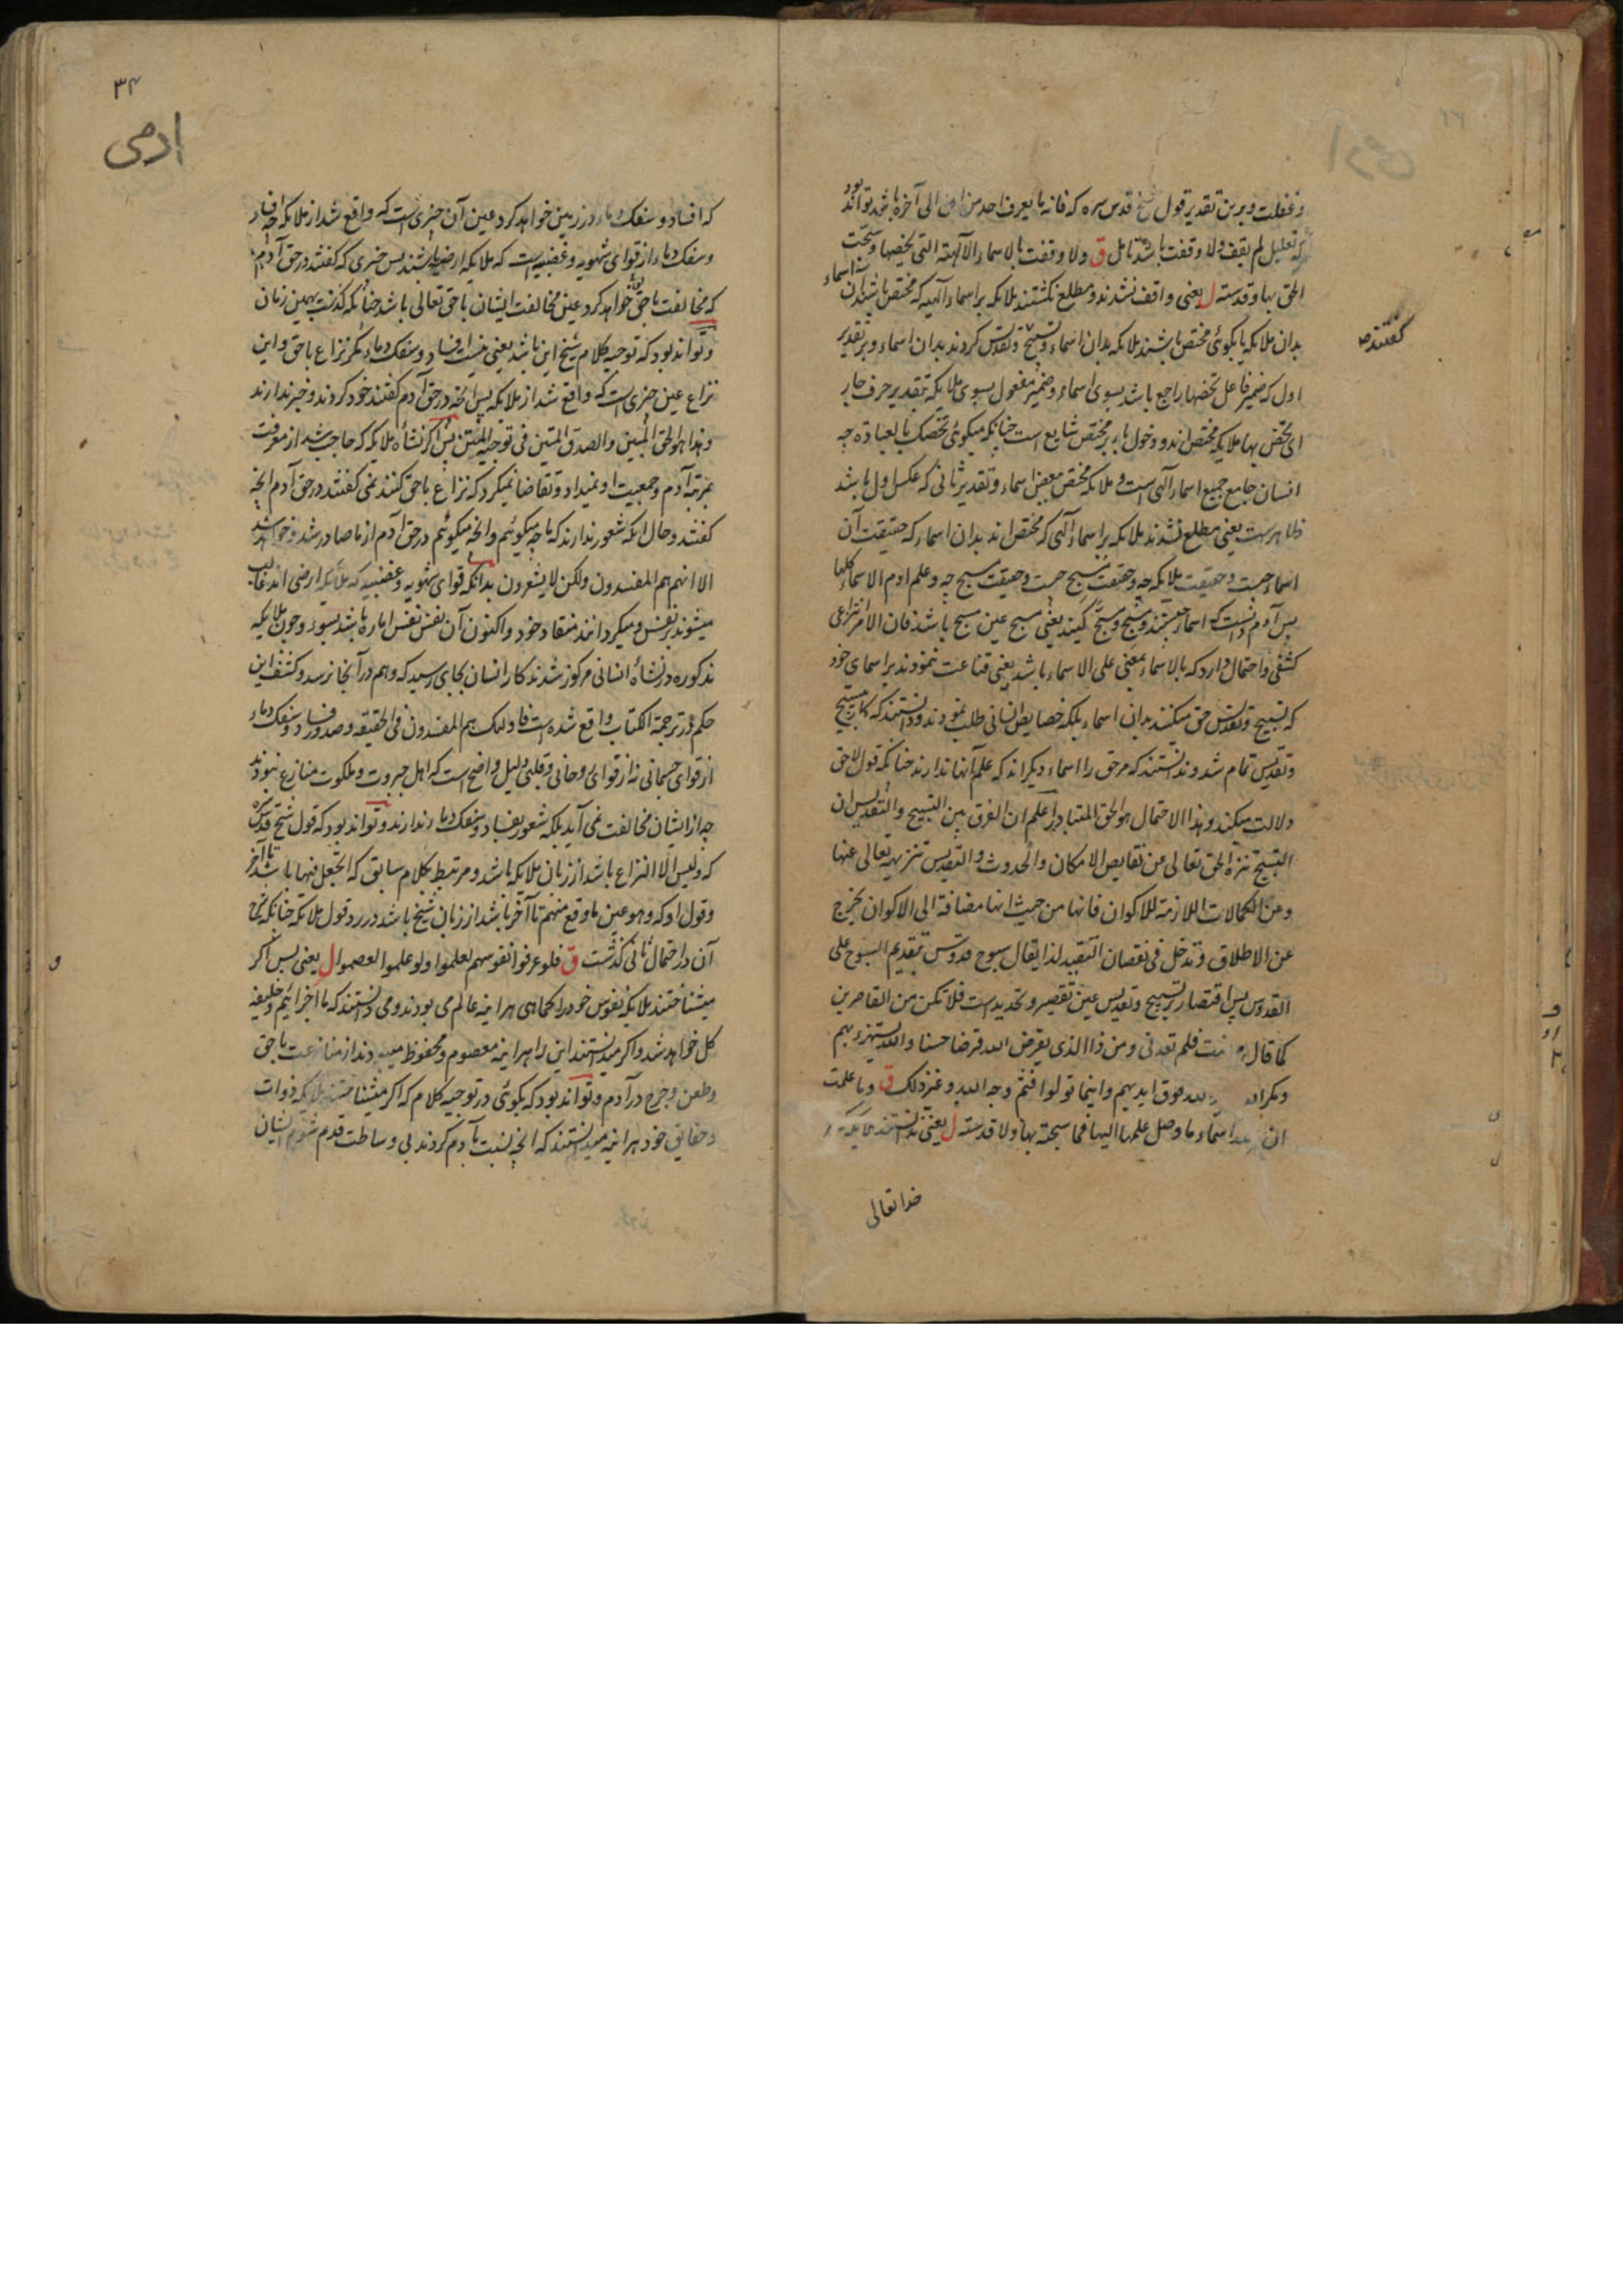 وغفلت وبرین تقدیر قول شیخ قدس سره که فانه ما یعرف احد من الی آخره باشد تواند بود
که تعلیل لم یقف ولا وقفت باشد تامل ق ولا وقفت بالاسماء الآلهیة التی تخصها وسبحت
الحق بها وقدسته ل یعنی واقف نشدند و مطلع نکشتند ملایکه براسماء الهیه که مختص باشند آن اسماء
بدان ملایکه یا بکوئی مختص باشند ملایکه بدان اسماء وتسبیح وتقدیس کردند بدان اسماء وبر تقدیر
اول که ضمیر فاعل تخصها راجع باشد بسوی اسماء وضمیر مفعول بسوی ملایکه بتقدیر حرف جار
ای تختص بها ملایکه مختص اند ودخول با بر مختص شایع است چنانکه میکوئی نخصک بالعبادة چه
انسان جامع جمیع اسماء آلهی است وملایکه مختص ببعض اسماء وتقدیر ثانی که عکس اول باشد
ظاهرست یعنی مطلع نشدند ملایکه براسماء آلهی که مختص اند بدان اسماء که حقیقت آن
اسماء چیست وحقیقت ملایکه چه وحقیقت تسبیح چیست وحقیقت مسبح چه وعلم ادم الاسماء کلها
پس آدم دانست که اسما چیستند ومسبح ومسبح کیند یعنی مسبح عین مسبح باشد فان الامر انتزاعی
کشفی واحتمال دارد که بالاسماء بمعنی علی الاسماء باشد یعنی قناعت ننمودند براسمای خود
که تسبیح وتقدیس حق میکنند بدان اسماء بلکه خصایص انسانی طلب نمودند ودانستند که کار تسبیح
وتقدیس تمام شد وندانستند که مر حق را اسماء دیکراند که علم آنها ندارند چنانکه قول لاحق
دلالت میکند وهذا الاحتمال هو الحق المتبادر اعلم ان الفرق بین التسبیح والتقدیس ان
التسبیح تنزه الحق تعالی عن نقایص الامکان والحدوث والتقدیس تنزیهه تعالی عنها
وعن الکمالات اللازمة للاکوان فانها من حیث انها مضافة الی الاکوان یخرج
عن الاطلاق وتدخل فی نقصان التقیید لذا یقال سبوح قدوس بتقدیم السبوح علی
القدوس پس اقتصار بر تسبیح وتقدیس عین تقصیر وتحدیدست فلا تکن من القاصرین
کما قال مرضت فلم تعدنی ومن ذا الذی یقرض الله قرضا حسنا والله یستهزء بهم
ومکر الله ید الله فوق ایدیهم واینما تولوا فثم وجه الله وغیر ذلک ق وما علمت
ان لله اسماء ما وصل علمها الیها فما سبحته بها ولا قدسته ل یعنی ندانستند ملایکه که
خدا تعالی
کفتند
۳۴
ادمی
که افساد وسفک دماء در زمین خواهد کرد عین آن چیزی است که واقع شد از ملایکه چه افساد
وسفک دماء از قوای شهویه وغضبیه است که ملایکه ارضیه باشند پس چیزی که کفتند در حق آدم
که مخالفت با حق خواهد کرد عین مخالفت ایشان با حق تعالی باشد چنانکه کذشت بهمین زمان
وتواند بود که توجیه کلام شیخ این باشد یعنی نیست افساد وسفک دماء مکر نزاع با حق واین
نزاع عین چیزی است که واقع شد از ملایکه پس آنچه در حق آدم کفتند خود کردند وخبر ندارند
وهذا هو الحق المبین والصدق المتین فی توجیه المتن پس اکر نشاة ملایکه که حاجب شد از معرفت
مرتبه آدم وجمعیت او نمیداد وتقاضا نمیکرد که نزاع با حق کنند نمی کفتند در حق آدم آنچه
کفتند وحال آنکه شعور ندارند که ما چه میکوئیم وآنچه میکوئیم در حق آدم از ما صادر شد وخواهد شد
الا انهم هم المفسدون ولکن لا یشعرون بدانکه قوای شهویه وغضبیه که ملایکه ارضی اند غالب
میشوند بر نفس ومیکردانند منقاد خود واکنون آن نفس نفس اماره باشد بسوء وچون ملایکه
مذکوره در نشاة انسانی مرکوز شدند کار انسان بجای رسید که وهم در آنجا نرسد وکشف این
حکم در ترجمة الکتاب واقع شده است فاولئک هم المفسدون فی الحقیقه وصدور فساد وسفک دماء
از قوای جسمانی نه از قوای روحانی وقلبی دلیل واضح است که اهل جبروت وملکوت منازع نبودند
چه از ایشان مخالفت نمی آید بلکه شعور بفساد وسفک دماء ندارند وتواند بود که قول شیخ قدس سره
که ولیس الا النزاع باشد از زبان ملایکه باشد ومرتبط بکلام سابق که اتجعل فیها باشد تا آخر
وقول او که وهو عین ما وقع منهم تا آخر باشد از زبان شیخ باشد در رد قول ملایکه چنانکه شرح
آن در احتمال ثانی کذشت ق فلو عرفوا نفوسهم لعلموا ولو علموا لعصموا ل یعنی پس اکر
میشناختند ملایکه نفوس خود را کماهی هر اینه عالم می بودند ومی دانستند که ما اجزائیم وخلیفه
کل خواهد شد واکر میدانستند این را هر اینه معصوم ومحفوظ میبودند از منازعت با حق
وطعن وجرح در آدم وتواند بود که بکوئی در توجیه کلام که اکر میشناختند ملایکه ذوات
وحقایق خود هر اینه میدانستند که آنچه نسبت بآدم کردند بی وساطت قدم شوم ایشان